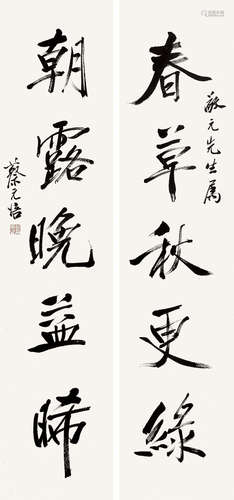 春草秋更綠
敬元先生屬
朝露晚益晞
蔡元培